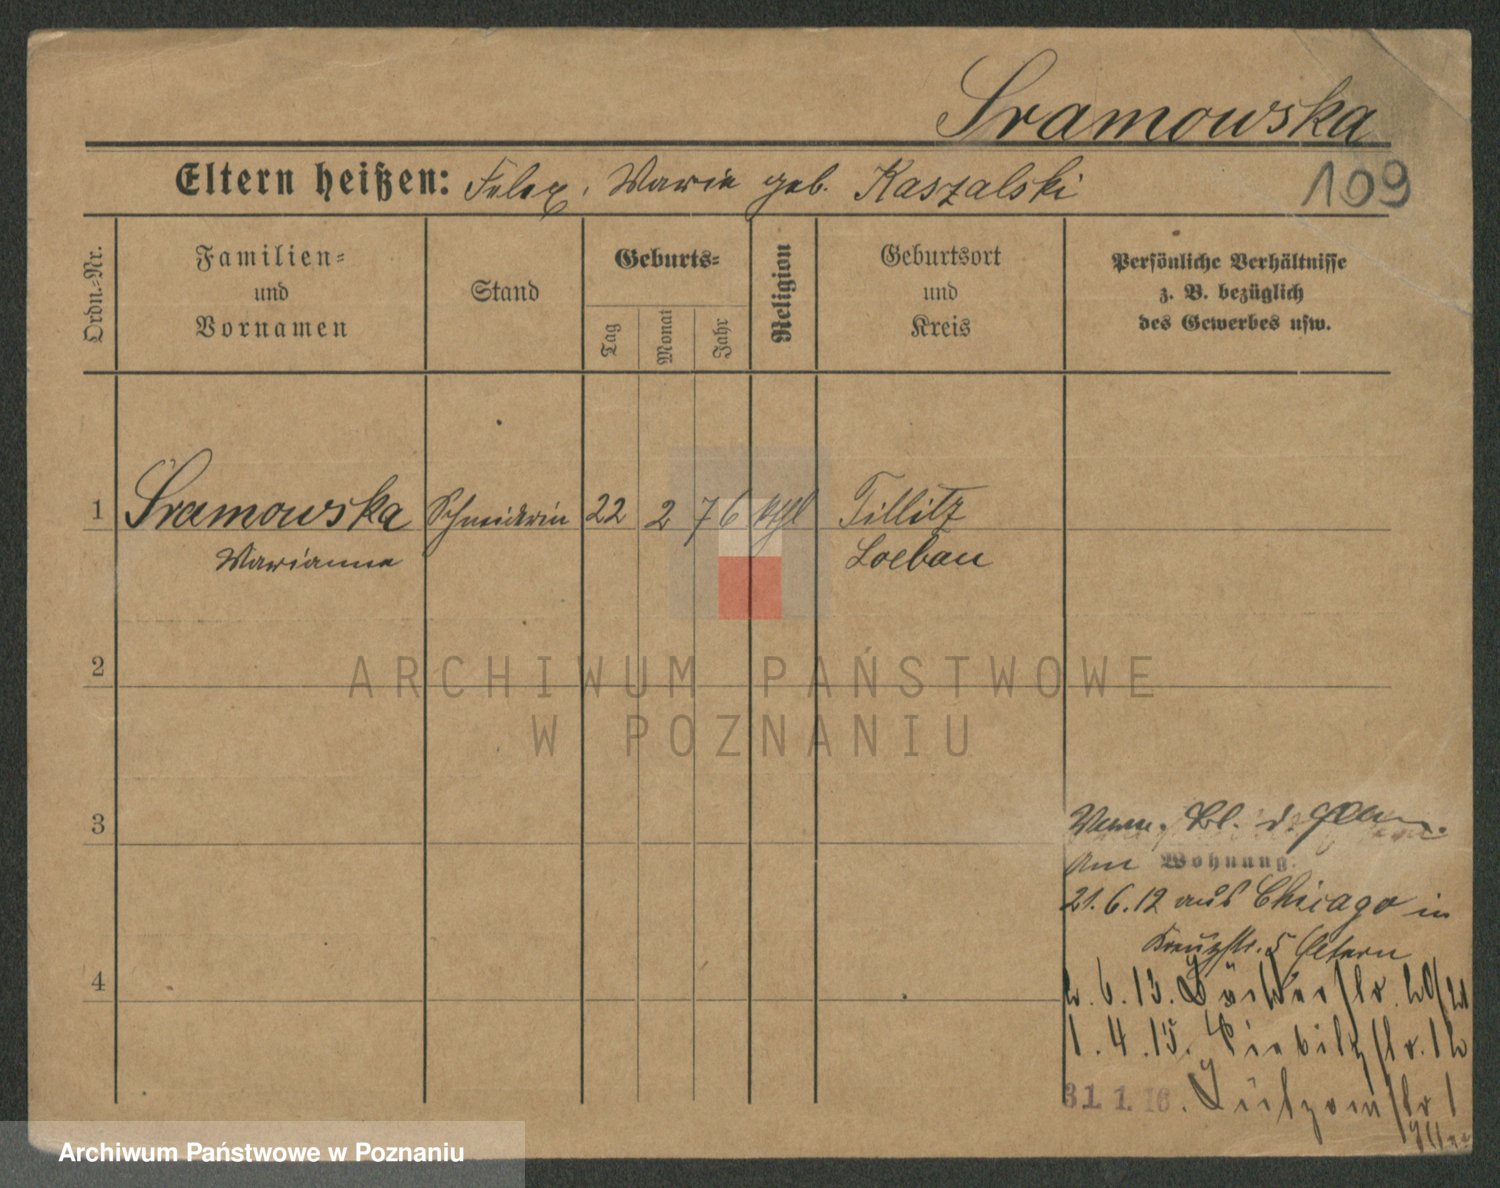 Sramowska
Eltern heißen: Felix, Marie geb. Kaszalski
109
Ordn.-Nr.
Familien-
und
Vornamen
Stand
Geburts-
Tag
Monat
Jahr
Religion
Geburtsort
und
Kreis
Persönliche Verhältnisse
z. B. bezüglich
des Gewerbes usw.
1 Sramowska Schneiderin 22 2 76 kthl Tillitz
Marianna Loebau
2
3
4
ARCHIWUM PAŃSTWOWE
W POZNANIU
Wohnung:
21.6.12 aus Chicago in
Kreuzstr. 5 Eltern
2.6.13.
1.4.15.
31.1.16. Lützowstr 1
Archiwum Państwowe w Poznaniu